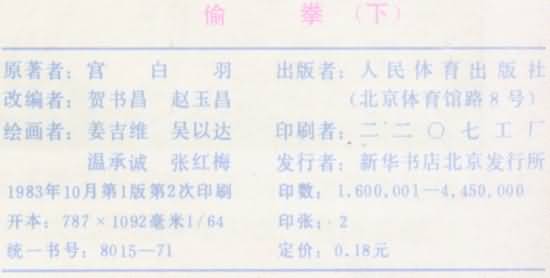 偷 拳（下）
原著者：宫 白 羽 出版者：人民体育出版社
改编者：贺书昌 赵玉昌 （北京体育馆路8号）
绘画者：姜吉维 吴以达 印刷者：二二〇七工厂
温承诚 张红梅 发行者：新华书店北京发行所
1983年10月第1版第2次印刷 印数：1,600,001—4,450,000
开本：787×1092毫米1/64 印张：2
统一书号：8015—71 定价：0.18元